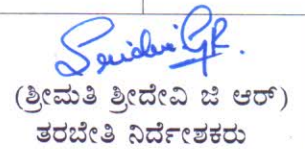 Sridevi GR.
(ಶ್ರೀಮತಿ ಶ್ರೀದೇವಿ ಜಿ ಆರ್)
ತರಬೇತಿ ನಿರ್ದೇಶಕರು